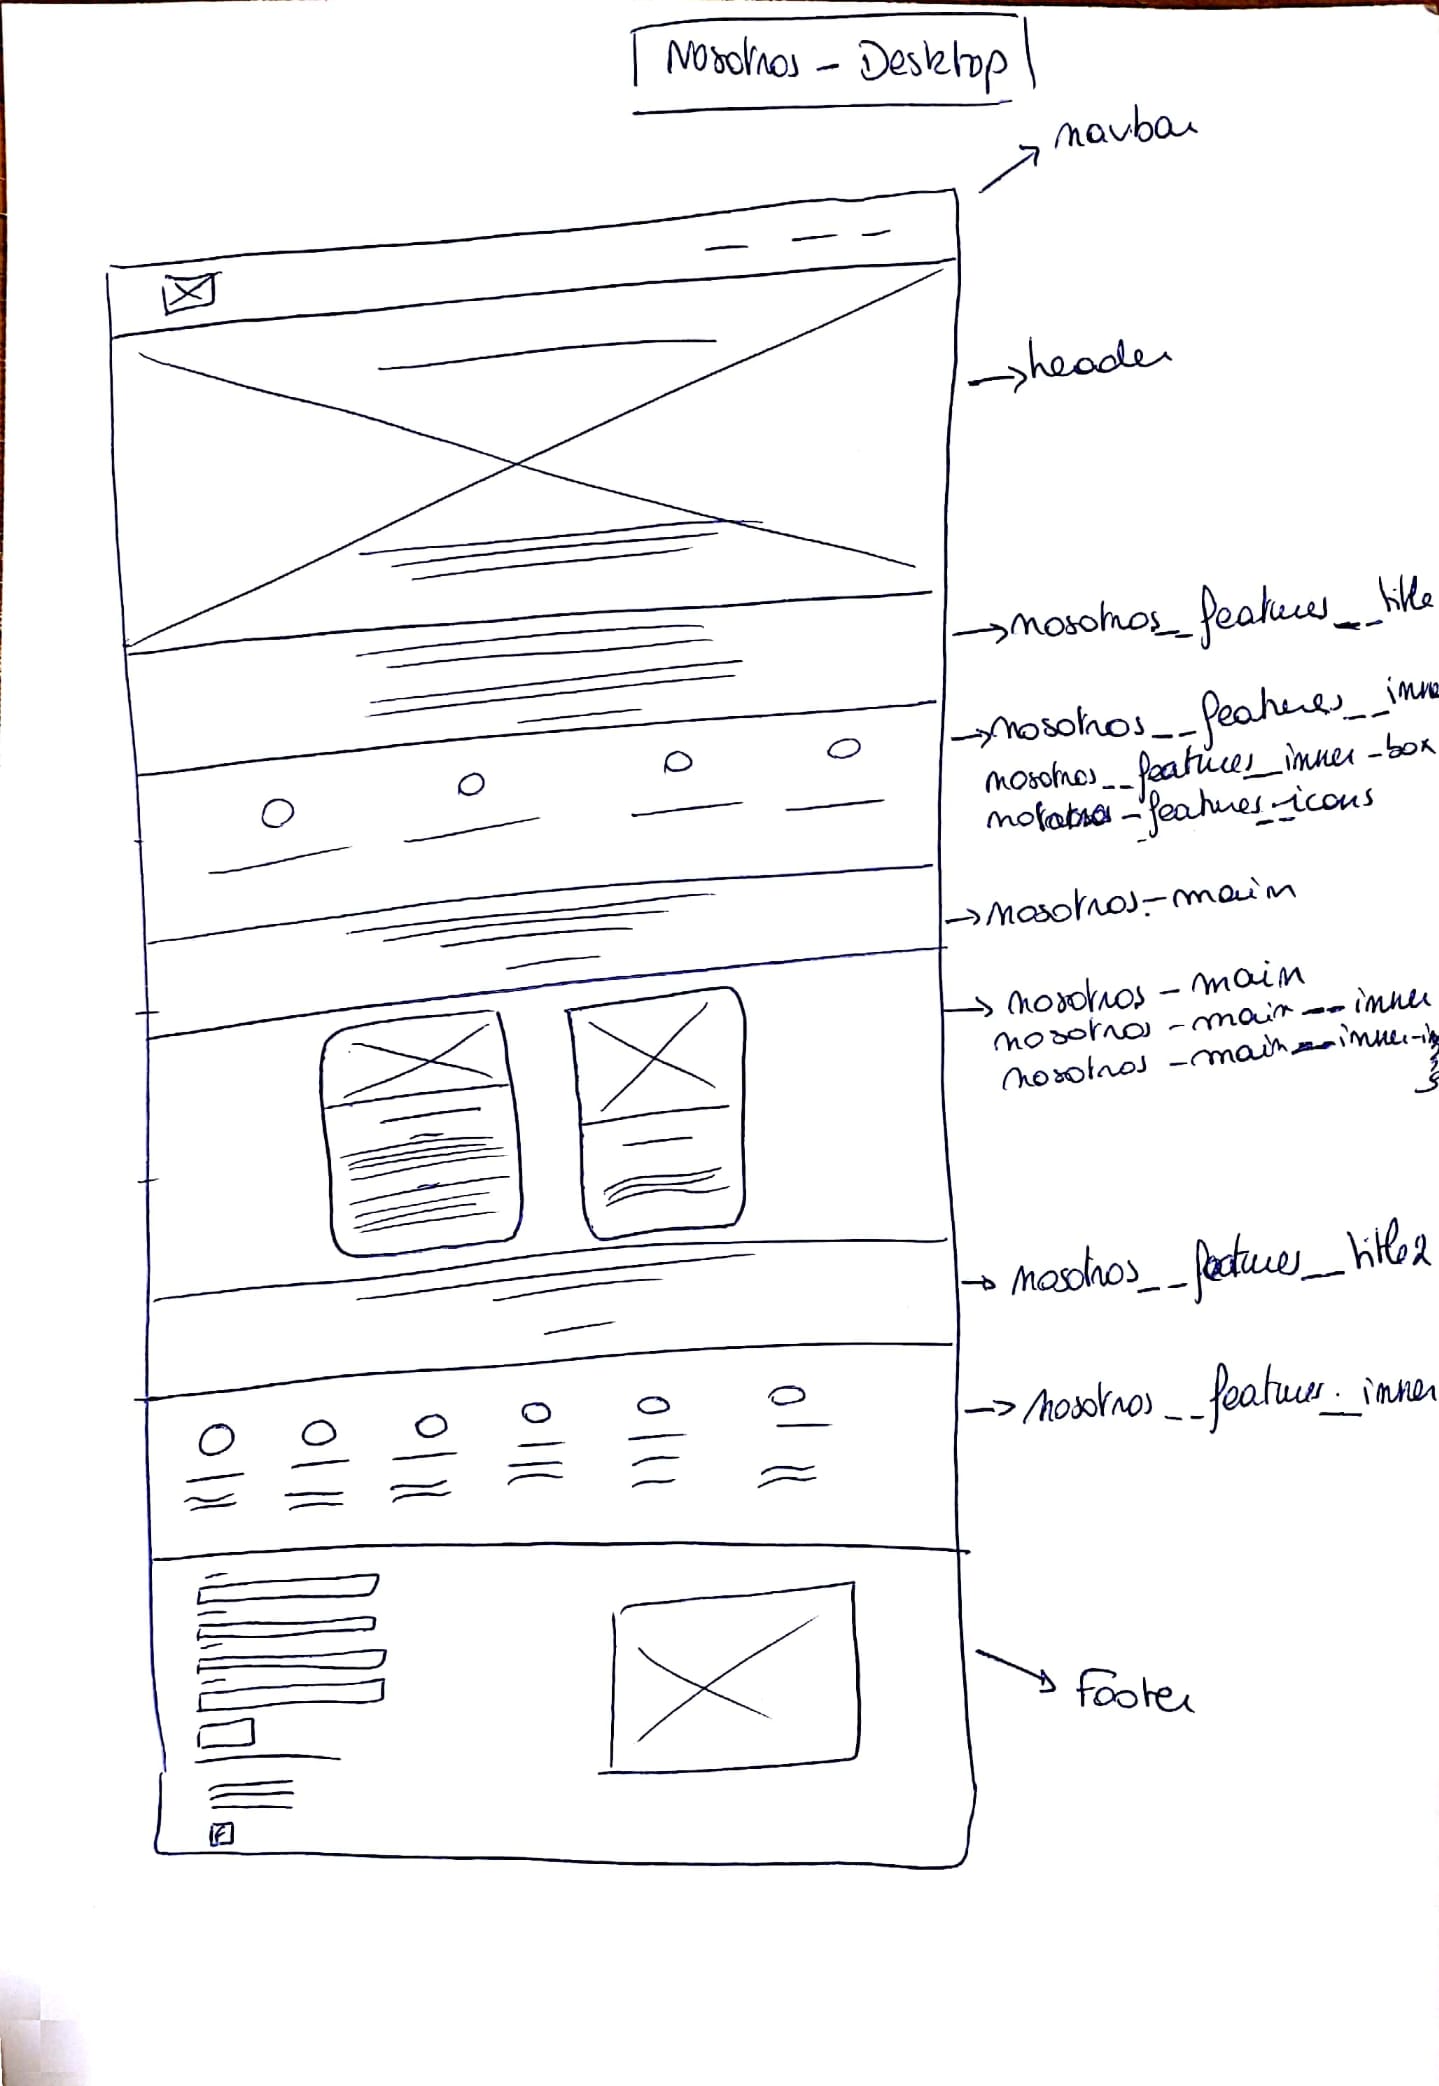 Nosotros - Desktop
navbar
header
nosotros__features__title
nosotros__features__inne
nosotros__features_inner-box
-features-icons
nosotros-main
nosotros-main
nosotros-main--inner
nosotros-main--inner-i
nosotros__features__title2
nosotros__features__inner
Footer
F